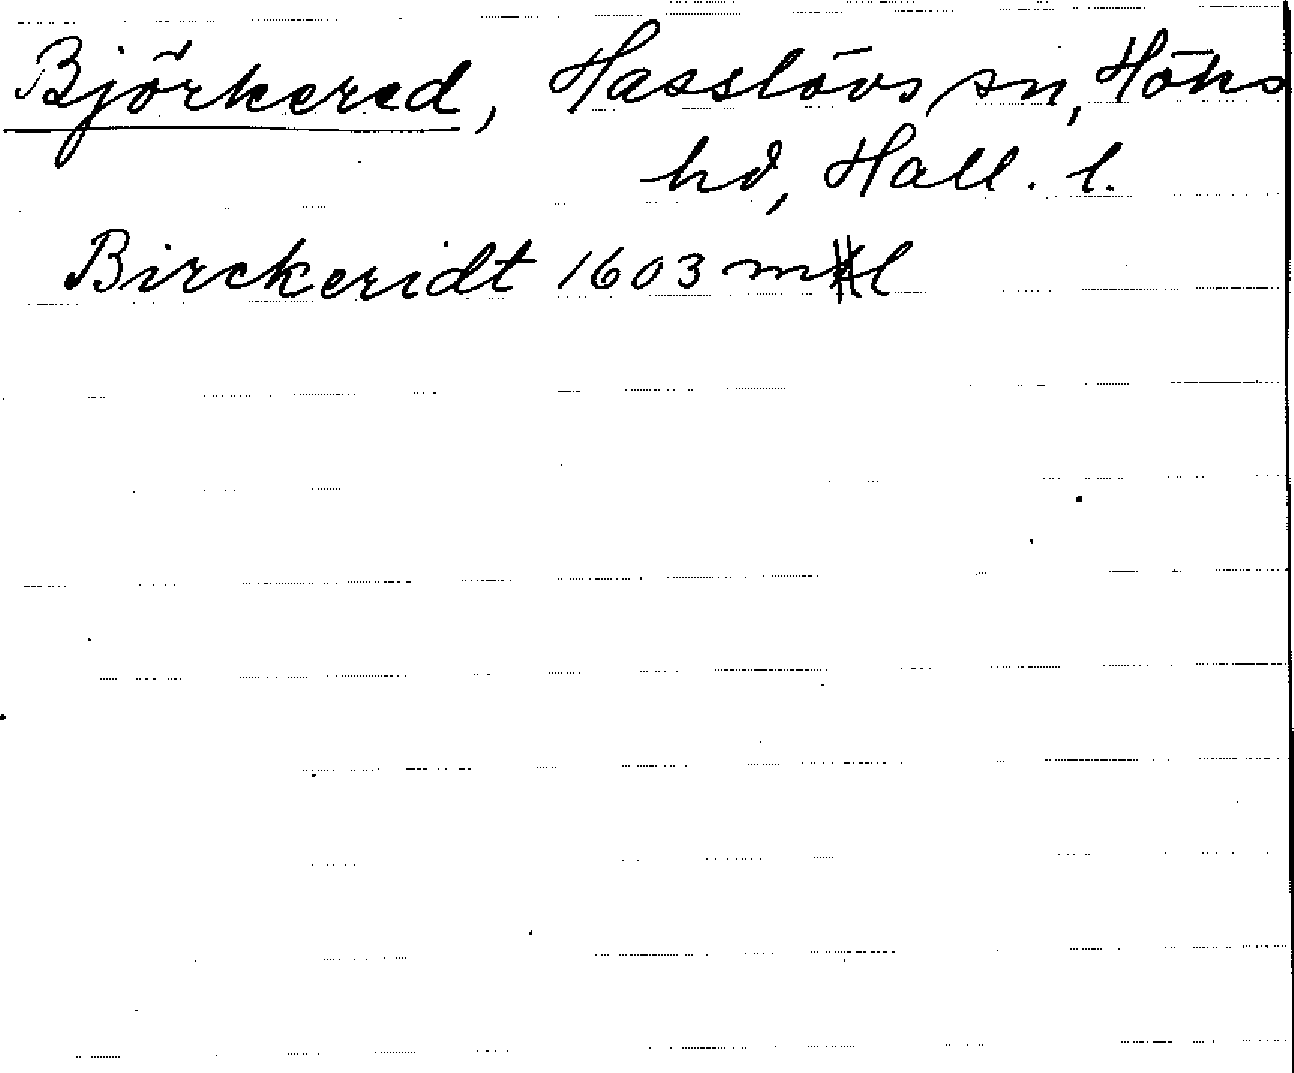 Björkered, Hasslövs sn, Höks
hd, Hall. l.
Birckeridt 1603 ml